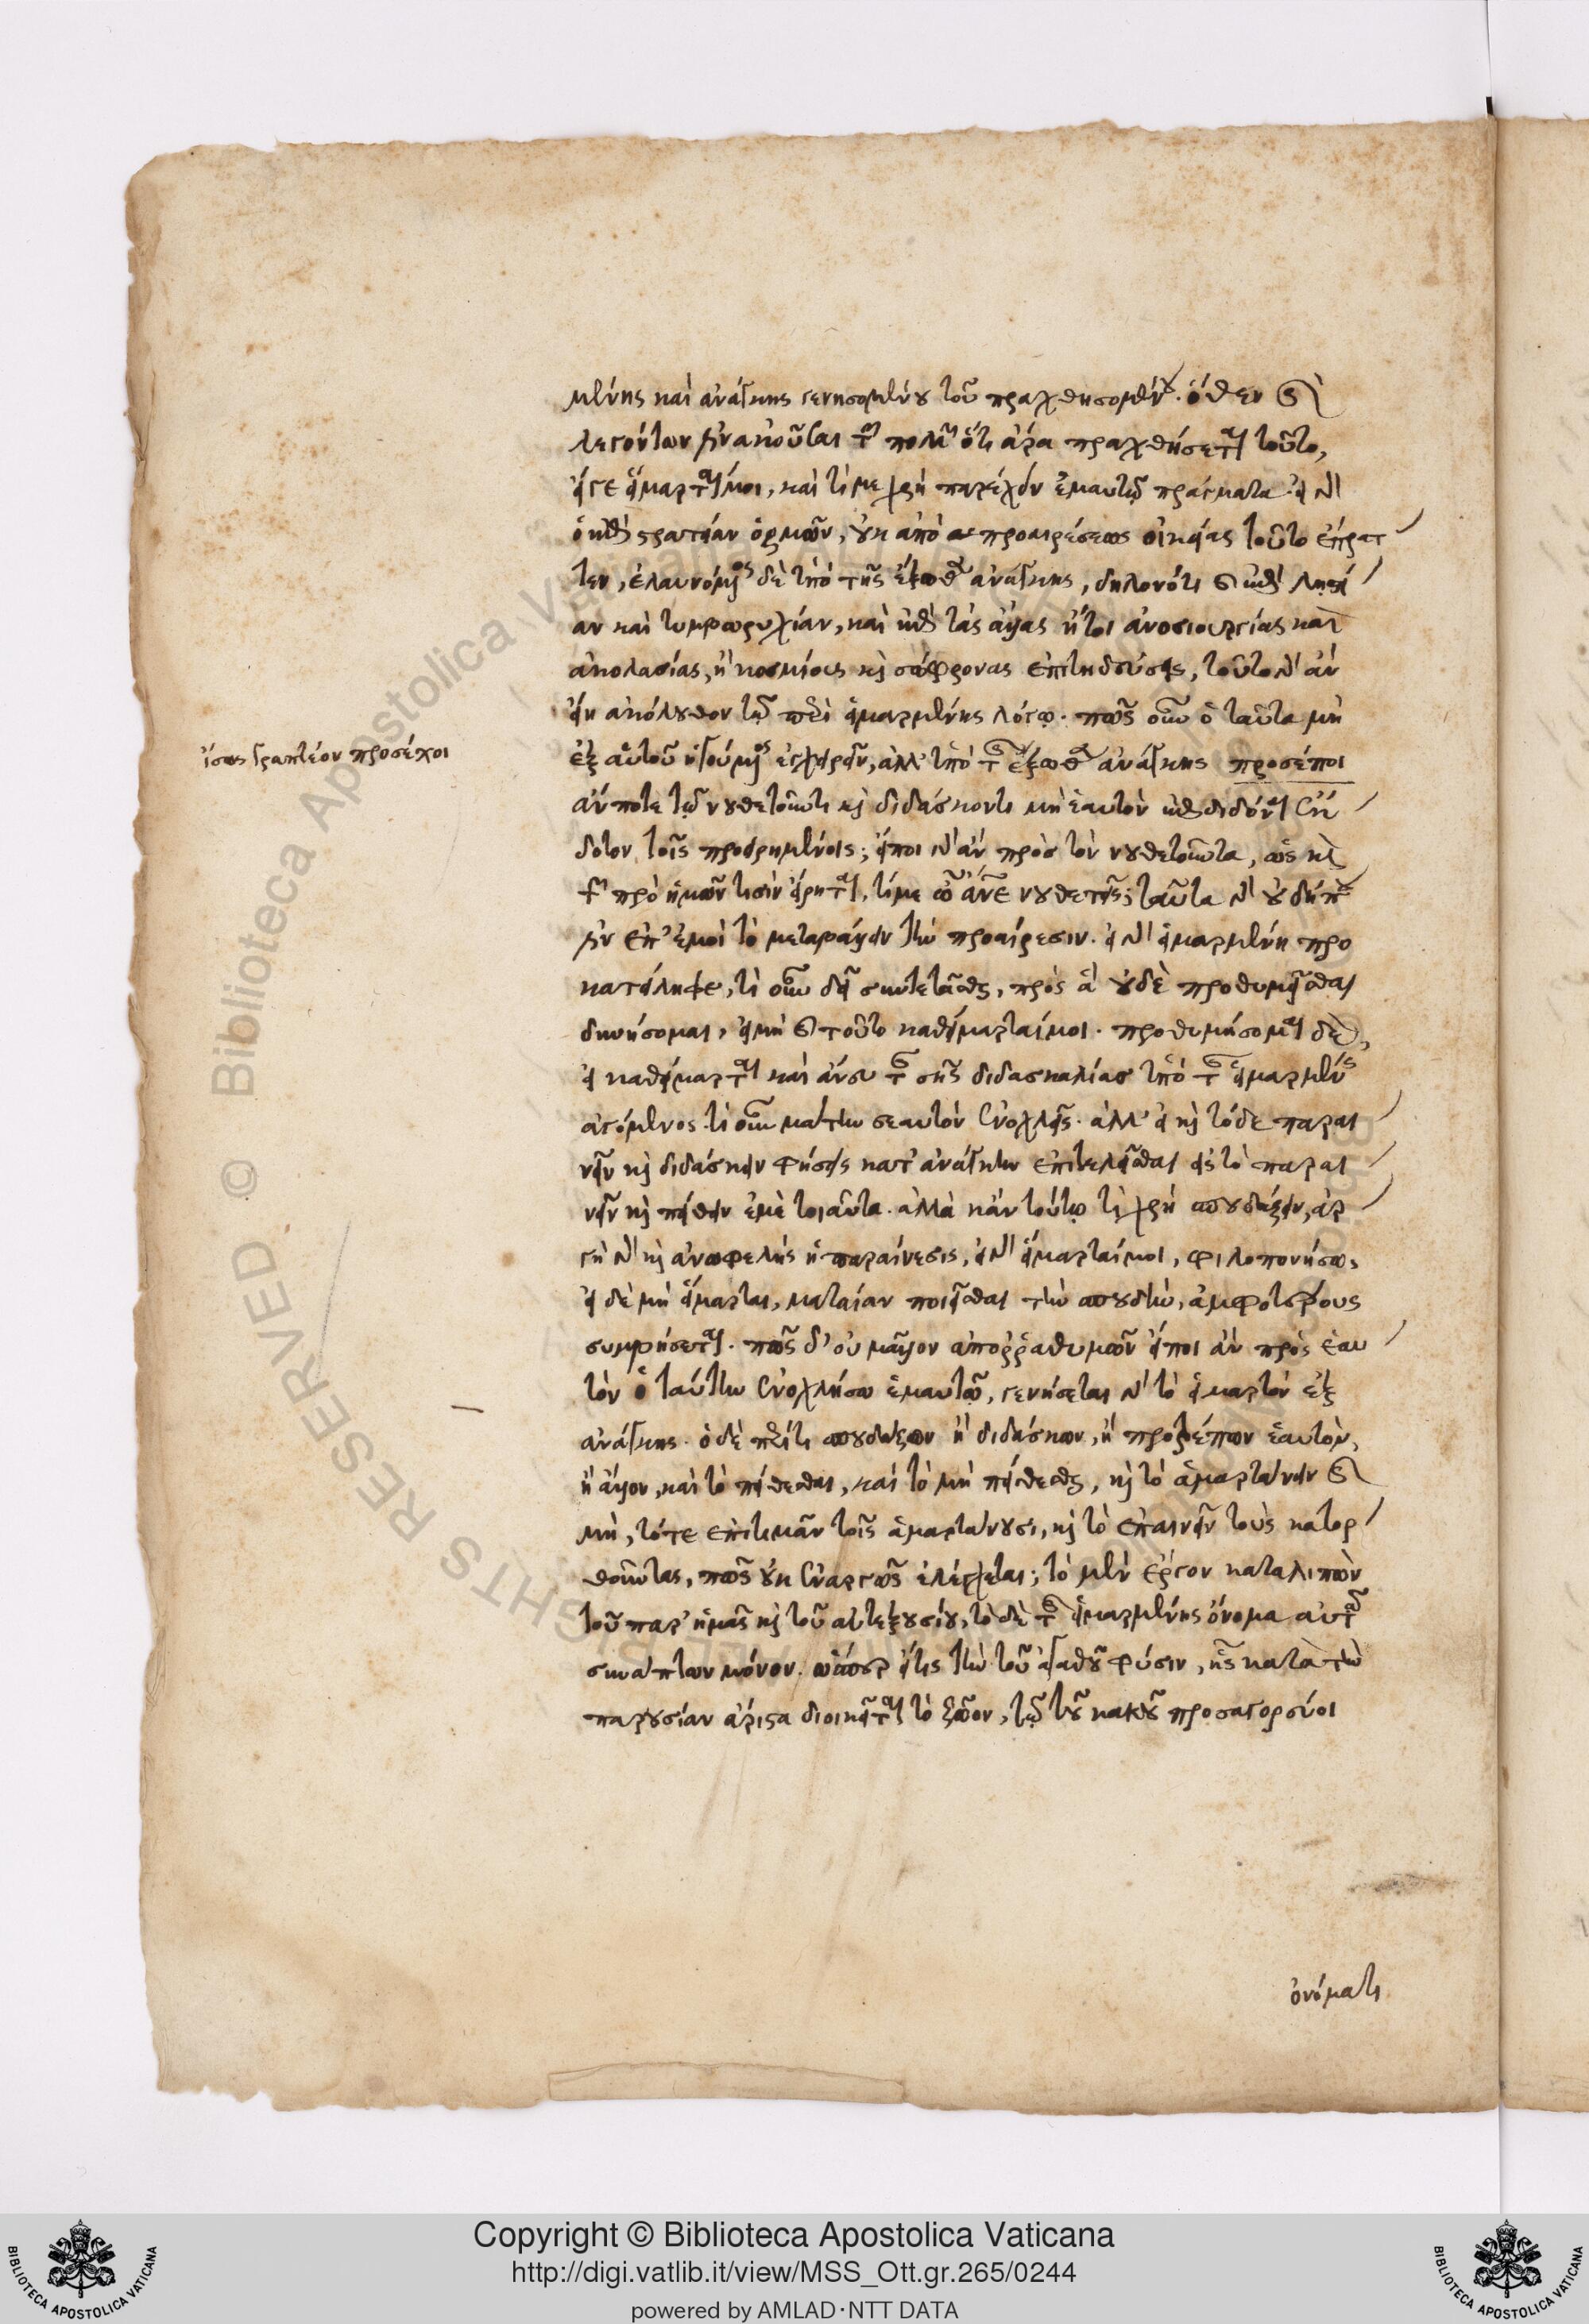 μένης καὶ ἀνάγκης γενησομένου τοῦ πραχθησομένου. ὅθεν καὶ
λεγόντων ἔστιν ἀκοῦσαι τῶν πολλῶν ὅτι ἄρα πραχθήσεται τοῦτο,
εἴγε εἵμαρταί μοι, καὶ τί με χρὴ παρέχειν ἐμαυτῷ πράγματα. εἰ δ'
ὁ κατὰ στρατείαν ὁρμῶν, οὐκ ἀπὸ προαιρέσεως οἰκείας τοῦτο ἔπρατ
τεν, ἐλαυνόμενος δὲ ὑπὸ τῆς ἔξωθεν ἀνάγκης, δηλονότι καὶ κατὰ λῃστεί
αν καὶ τυμβωρυχίαν, καὶ κατὰ τὰς ἄλλας ἤτοι ἀνοσιουργίας καὶ
ἀκολασίας, ἢ κοσμίους καὶ σώφρονας ἐπιτηδεύσεις, τοῦτο δ' ἂν
εἴη ἀκόλουθον τῷ περὶ εἱμαρμένης λόγῳ. πῶς οὖν ὁ ταῦτα μὴ
ἐξ αὑτοῦ ἡγούμενος ἐγχειρεῖν, ἀλλ' ὑπὸ τῆς ἔξωθεν ἀνάγκης προσέποι
ἄν ποτε τῷ νουθετοῦντι καὶ διδάσκοντι μὴ ἑαυτὸν καταδιδόναι ἔκ
δοτον τοῖς προειρημένοις; εἴποι δ' ἂν πρὸς τὸν νουθετοῦντα, ὡς καὶ
τῶν πρὸ ἡμῶν τισὶν εἴρηται, τί με ὦ ἄνθρωπε νουθετεῖς; ταῦτα δ' οὐδήπου
ἔστιν ἐπ' ἐμοὶ τὸ μεταβάλλειν τὴν προαίρεσιν. εἰ δ' εἱμαρμένη προ
κατείληφε, τί οὖν δεῖ συντετάσθαι, πρὸς ἃ οὐδὲ προθυμεῖσθαι
δυνήσομαι, εἰ μὴ καὶ τοῦτο καθείμαρταί μοι. προθυμήσομαι δὲ,
εἰ καθείμαρται καὶ ἄνευ τῆς σῆς διδασκαλίας ὑπὸ τῆς εἱμαρμένης
ἀγόμενος. τί οὖν μάτην σεαυτὸν ἐνοχλεῖς. ἀλλ' εἰ καὶ τόδε παραι
νεῖν καὶ διδάσκειν φήσεις κατ' ἀνάγκην ἐπιτελεῖσθαι εἰς τὸ παραι
νεῖν καὶ πείθειν ἐμὲ τοιαῦτα. ἀλλὰ κἀν τούτῳ τί χρὴ σπουδάζειν, ἀρ
γὴ δὲ καὶ ἀνωφελὴς ἡ παραίνεσις, εἰ δ' εἵμαρταί μοι, φιλοπονήσω,
εἰ δὲ μὴ εἵμαρται, ματαίαν ποιεῖσθαι τὴν σπουδὴν, ἀμφοτέρους
συμφήσεται. πῶς δ' οὐ μᾶλλον ἀπορῥαθυμῶν εἴποι ἂν πρὸς ἑαυ
τὸν ὁ ταύτην ἐνοχλήσω ἐμαυτῷ, γενήσεται δ' τὸ εἱμαρτὸν ἐξ
ἀνάγκης. ὁ δὲ περί τι σπουδάζων ἢ διδάσκων, ἢ προτρέπων ἑαυτὸν,
ἢ ἄλλον, καὶ τὸ πείθεσθαι, καὶ τὸ μὴ πείθεσθαι, καὶ τὸ ἁμαρτάνειν καὶ
μὴ, τότε ἐπιτιμᾶν τοῖς ἁμαρτάνουσι, καὶ τὸ ἐπαινεῖν τοὺς κατορ
θοῦντας, πῶς οὐκ ἐναργῶς ἐλέγχεται; τὸ μὲν ἔργον καταλιπὼν
τοῦ παρ' ἡμᾶς καὶ τοῦ αὐτεξουσίου, τὸ δὲ τῆς εἱμαρμένης ὄνομα αὐτῷ
συνάπτων μόνον. ὥσπερ εἴ τις τὴν τοῦ ἀγαθοῦ φύσιν, ἧς κατὰ τὴν
παρουσίαν ἄριστα διοικεῖται τὸ ζῷον, τῷ τοῦ κακοῦ προσαγορεύοι
ἴσως γραπτέον προσέχοι
ὀνόματι
Copyright © Biblioteca Apostolica Vaticana
http://digi.vatlib.it/view/MSS_Ott.gr.265/0244
powered by AMLAD·NTT DATA